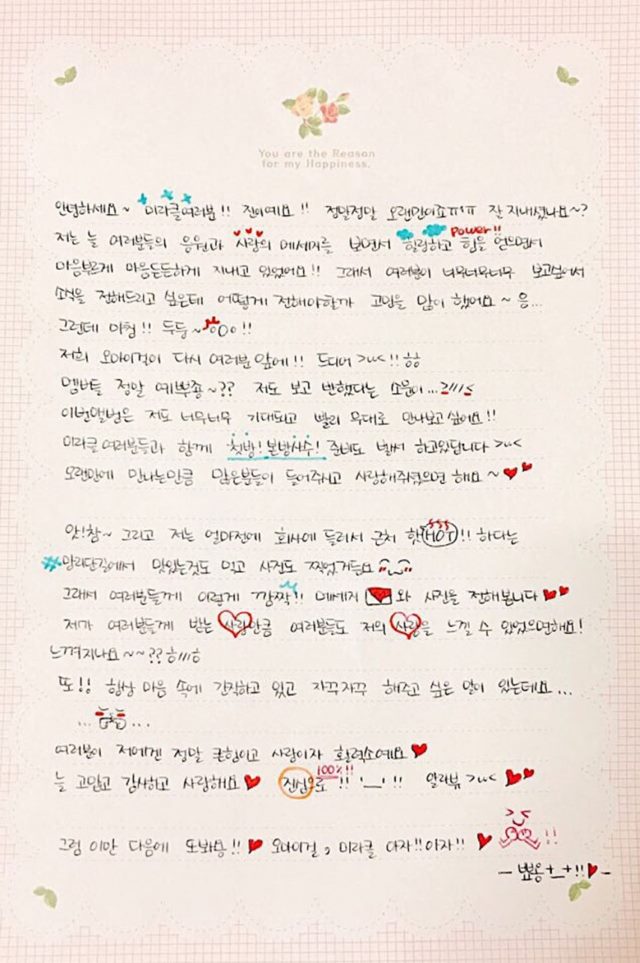 You are the Reason
for my Happiness.
안녕하세요~ 미라클여러분!! 진이예요!! 정말정말 오랜만이죠ㅠ'ㅠ 잘 지내셨나요~?
저는 늘 여러분들의 응원과 사랑의 메세지를 보면서 힐링하고 힘을 얻으면서 Power!!
마음부르게 마음든든하게 지내고 있었어요!! 그래서 여러분이 너무너무너무 보고싶어서
소식을 전해드리고 싶은데 어떻게 전해야할까 고민을 많이 했어요~ 응...
그런데 마침!! 두둥~ °O°!!
저희 오마이걸이 다시 여러분 앞에!! 드디어 >ㅅ<!! ㅎㅎ
멤버들 정말 예뿌죵~?? 저도 보고 반했다는 소문이...
이번앨범은 저도 너무너무 기대되고 빨리 무대로 만나보고싶어요!!
미라클 여러분들과 함께 첫방! 본방사수! 준비도 벌써 하고있답니다 >ㅅ<
오랜만에 만나는만큼 많은분들이 들어주시고 사랑해주셨으면 해요~♥♥
앗!참~ 그리고 저는 얼마전에 회사에 들러서 근처 핫(HOT)!! 하다는
#망리단길에서 맛있는것도 먹고 사진도 찍었거든요
그래서 여러분들께 이렇게 깜짝!! 메세지 와 사진을 전해봅니다♥♥
제가 여러분들께 받는 사랑만큼 여러분들도 저의 사랑을 느낄 수 있었으면해요!
느껴지나요~~?? ㅎ///ㅎ
또!! 항상 마음 속에 간직하고 있고 자꾸자꾸 해주고 싶은 말이 있는데요...
... ...
여러분이 저에겐 정말 큰힘이고 사랑이자 활력소예요♥
늘 고맙고 감사하고 사랑해요♥ 진심으로 100%!! !! '__' !! 알라뷰 >ㅅ< ♥♥
그럼 이만 다음에 또봐용!! ♥ 오마이걸, 미라클 아자!! 아자!! ♥ !!
- 뾰옹 +_+!!♥ -